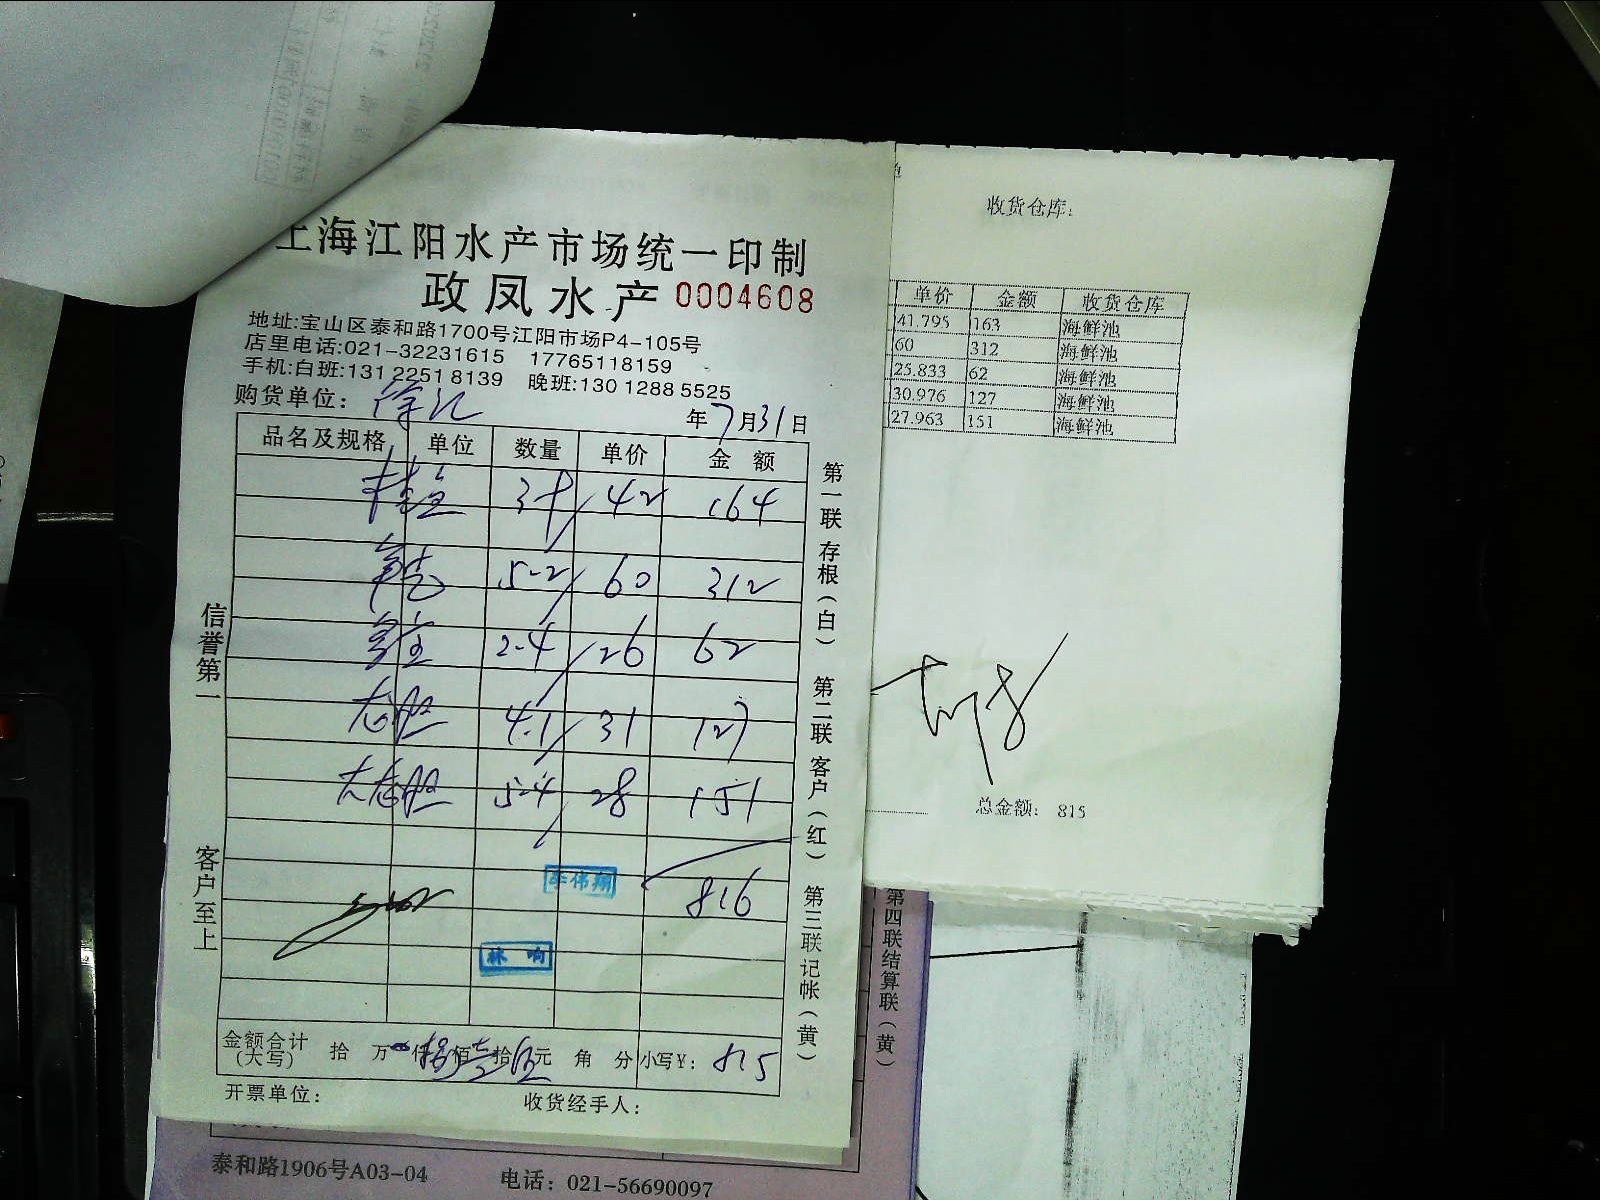 上海江阳水产市场统一印制
政凤水产 0004608
地址:宝山区泰和路1700号江阳市场P4-105号
店里电话:021-32231615 17765118159
手机:白班:131 2251 8139 晚班:130 1288 5525
购货单位: 徐汇
年 7 月 31 日
品名及规格 单位 数量 单价 金额
42 164
5-2 60 312
2-4 26 62
4.1 31 127
5-4 28 151
李伟翔
816
林响
金额合计(大写) 拾 万 仟 捌 佰 壹 拾 伍 元 角 分 小写¥: 815
开票单位: 收货经手人:
信誉第一
客户至上
第一联存根(白) 第二联客户(红) 第三联记帐(黄)
收货仓库:
单价 金额 收货仓库
41.795 163 海鲜池
60 312 海鲜池
25.833 62 海鲜池
30.976 127 海鲜池
27.963 151 海鲜池
总金额: 815
第四联结算联(黄)
泰和路1906号A03-04 电话: 021-56690097